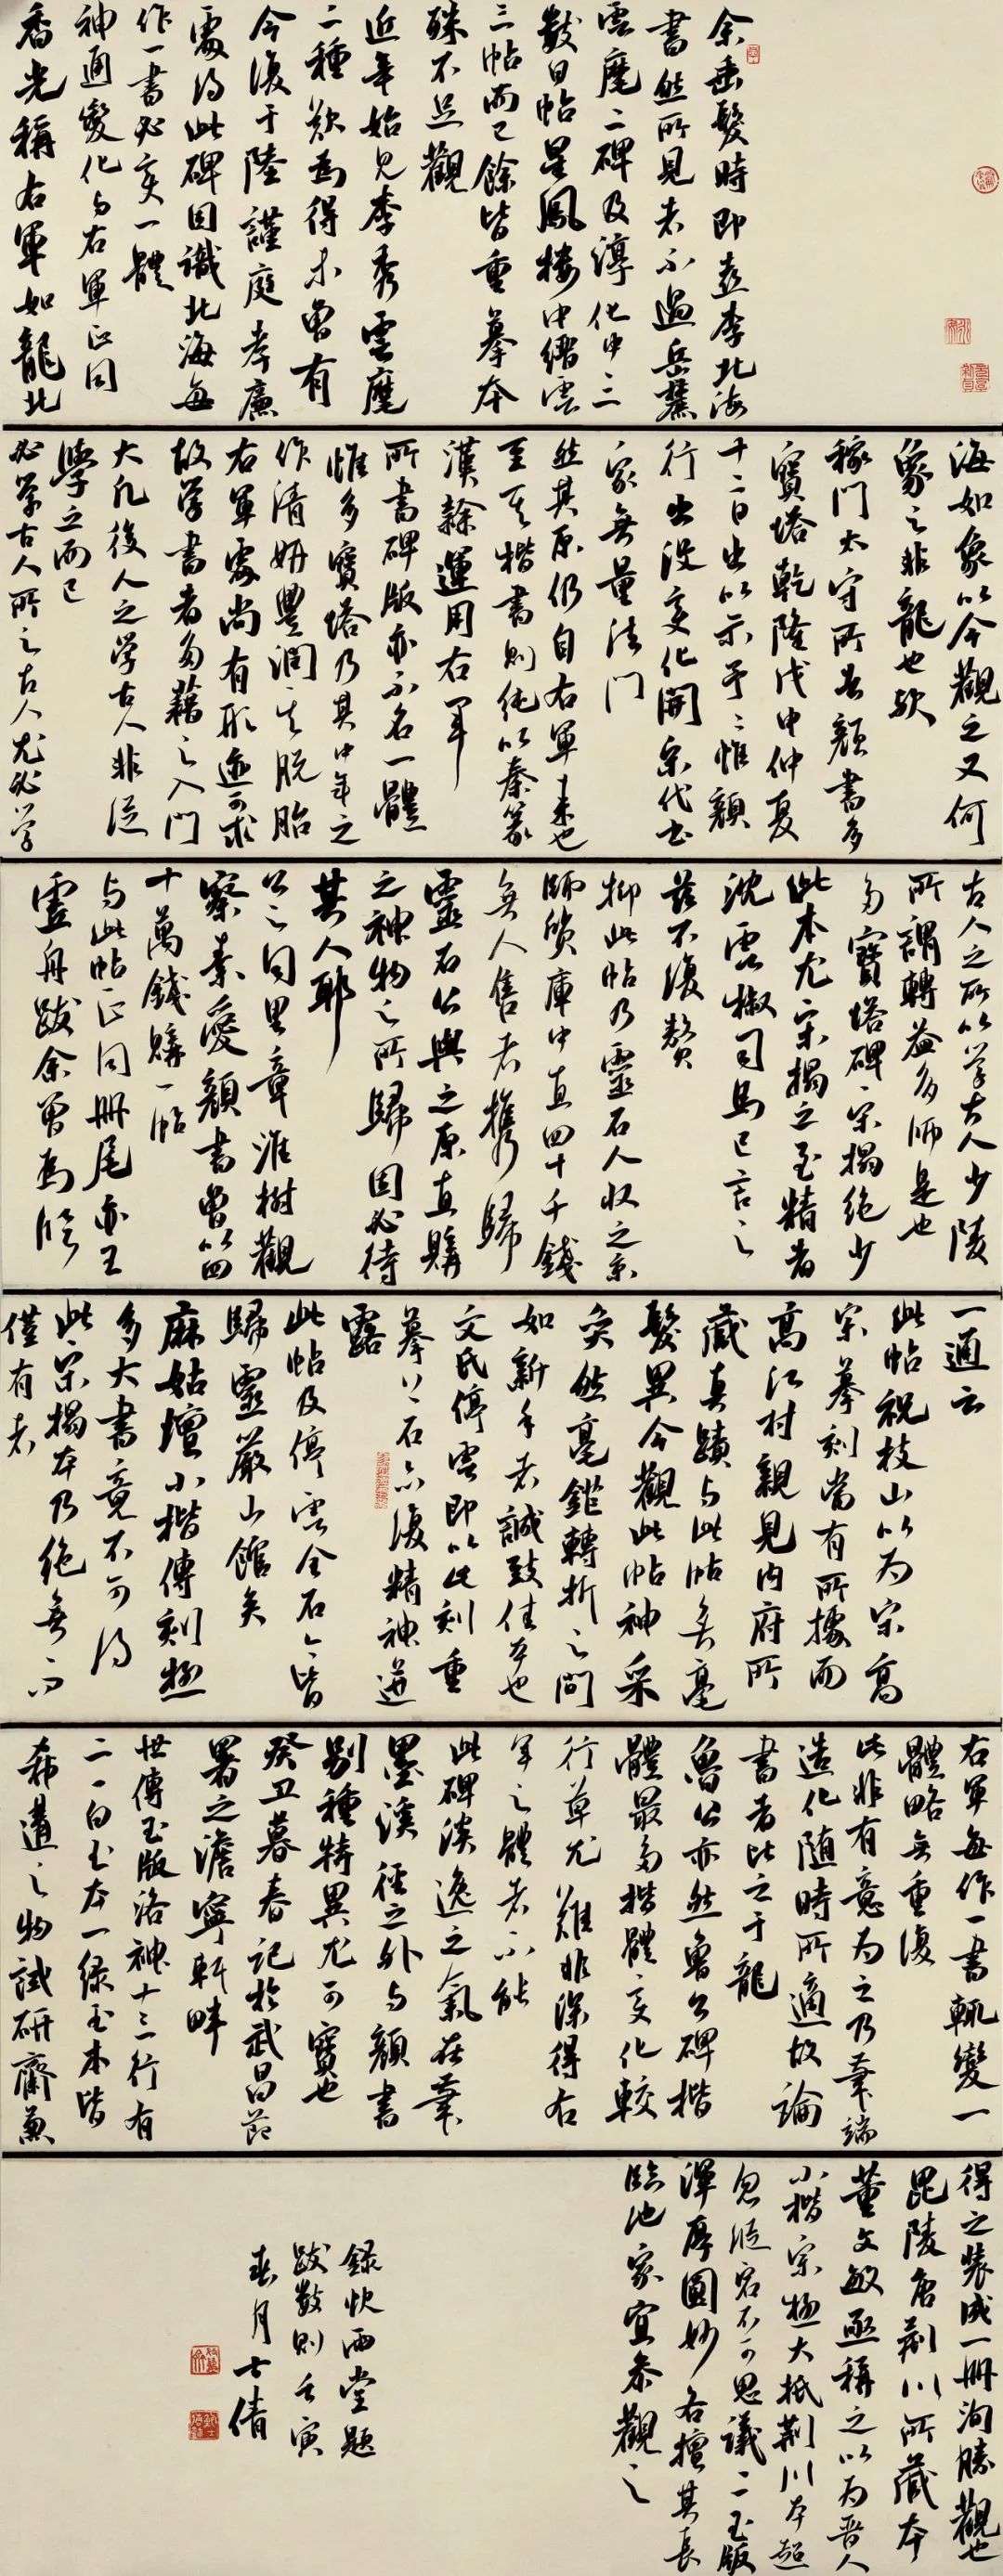 余垂髮時即喜李北海
書然所見者不過岳麓
雲麾二碑及淳化中三
數日帖星鳳樓中縉雲
三帖而已餘皆重摹本
殊不足觀
近年始見李秀雲麾
二種歎為得未曾有
今復于陸謹庭孝廉
處得此碑因識北海每
作一書必變一體
神通變化与右軍正同
香光稱右軍如龍北
海如象以今觀之又何
象之非龍也歟
稼門太守所藏顏書多
寶塔乾隆戊申仲夏
十二日出以示予予惟顏
行出沒變化開宋代書
家無量法門
然其原仍自右軍來也
至其楷書則純以秦篆
漢隸運用右軍
所書碑版亦不名一體
惟多寶塔乃其中年之
作清妍豐潤其脫胎
右軍處尚有形迹可求
故學書者多藉之入門
大凡後人之學古人非從
學之而已
必學古人所之古人尤必學
古人之所以學古人少陵
所謂轉益多師是也
多寶塔碑宋搨絕少
此本尤宋搨之至精者
沈雲椒司馬已言之
茲不復贅
抑此帖乃靈石人收之京
師質庫中直四十千錢
無人售者攜歸
靈石公與之原直購
之神物之所歸固必待
其人耶
公之同里章淮樹觀
察素愛顏書曾以四
十萬錢購一帖
与此帖正同冊尾亦王
虛舟跋余曾為臨
一通云
此帖祝枝山以為宋高
宗摹刻當有所據而
高江村親見內府所
藏真蹟与此帖無毫
髮異今觀此帖神采
奐然毫鋩轉折之間
如新手者誠致佳本也
文氏停雲即以此刻重
摹上石亦復精神遒
露
此帖及停雲全石今皆
歸靈巖山館矣
麻姑壇小楷傳刻極
多大書竟不可得
此宋搨本乃絕無而
僅有者
右軍每作一書輒變一
體略無重復
此非有意為之乃筆端
造化隨時所適故論
書者比之于龍
魯公亦然魯公碑楷
體最多楷體變化較
行草尤難非深得右
軍之體者不能
此碑淡逸之氣在筆
墨溪徑之外与顏書
別種特異尤可寶也
癸丑暮春記於武昌節
署之澹寧軒時
世傳玉版洛神十三行有
二一白玉本一綠玉本皆
希遘之物試研齋兼
得之裝成一冊洵勝觀也
毘陵唐荊川所藏本
董文敏亟稱之以為晉人
小楷宗極大抵荊川本超
忽縱宕不可思議二玉版
渾厚圓妙各擅其長
臨池家宜參觀之
錄快雨堂題
跋數則壬寅
春月士倩